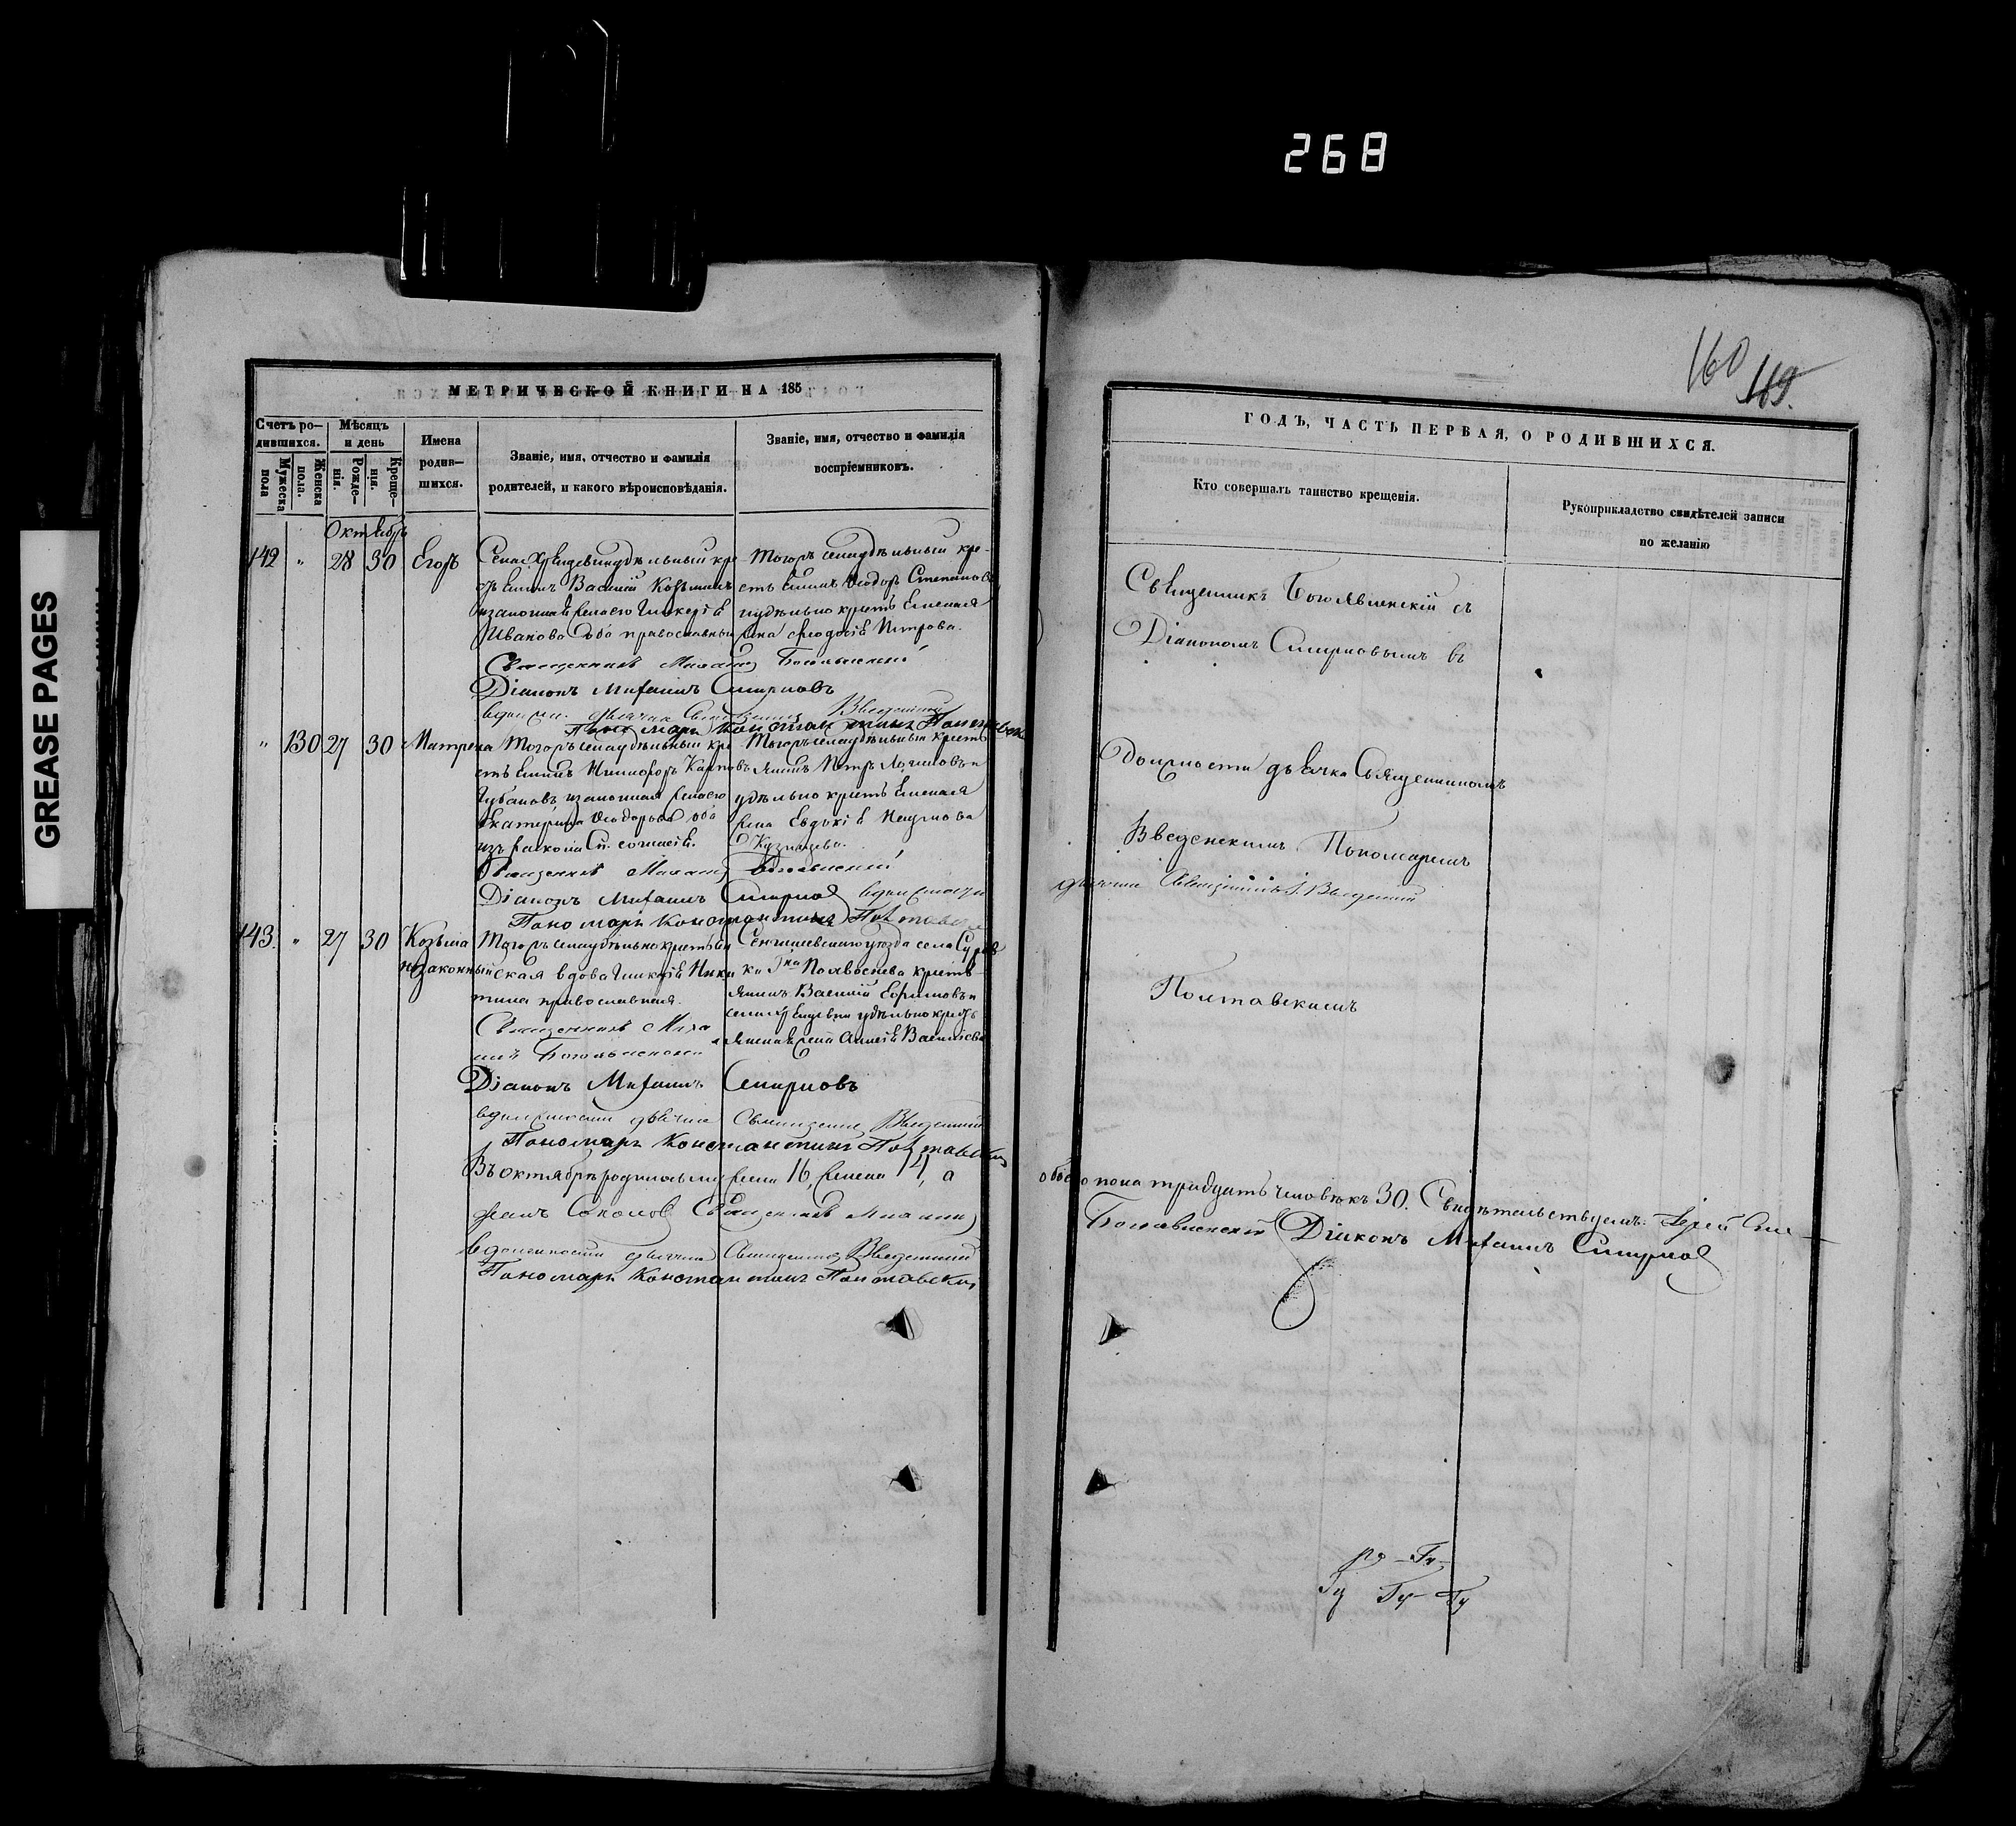 268
GREASE PAGES
160
119.
МЕТРИЧЕСКОЙ КНИГИ НА 185
Счетъ ро–
дившихся.
Мужеска
пола
Женска
пола.
Мѣсяцъ
и день
Рожде–
нія.
Креще–
нія.
Имена
родив–
шихся.
Званіе, имя, отчество и фамилія
родителей, и какого вѣроисповѣданія.
Званіе, имя, отчество и фамилія
воспріемниковъ.
Октябрь
142 " 28 30 Егоръ
Василій Козьминъ
законная жена его Гликерія
Иванова оба православныи
Тогожъ села удѣльный кре-
стьянинъ Ѳеодоръ Степановъ
удѣльно крестьянская
жена Ѳеодосія Петрова.
Священникъ Михаилъ Богоявленскій
Діаконъ Михаилъ Смирновъ
дьячка Священникъ Введенскій
Пономарь Константинъ Полтавскій
" 130 27 30 Матрена
Тогожъ села удѣльный кре
стьянинъ Никифоръ Карповъ
Губановъ, законная жена его
Екатерина Ѳеодорова оба
изъ раскола Сп. согласія.
Тогожъ села удѣльный кресть
янинъ Петръ Логиновъ и
удѣльно крестьянская
жена Евдокія Наумова
Кузнецова.
Священникъ Михаилъ Богоявленскій
Діаконъ Михаилъ Смирновъ в должности
Пономарь Константинъ Полтавскій
143. " 27 30 Козьма
незаконный
Тогожъ села удѣльно крестьян
ская вдова Гликерія Ники
тина православная.
Сенгилеевскаго уѣзда села
Гна кресть
янинъ Василій Ефимовъ и
удѣльно кресть
янская жена Васильева
Священникъ Миха
илъ Богоявленскій
Діаконъ Михаилъ Смирновъ
в должности дьячка Священникъ Введенскій
Пономарь Константинъ Полтавскій
Въ октябрѣ родилось муж. пола 16, женска 14, а
Соколовъ Священникъ Михаилъ
в должности дьячка Священникъ Введенскій
Пономарь Константинъ Полтавскій
ГОДЪ, ЧАСТЬ ПЕРВАЯ, О РОДИВШИХСЯ.
Кто совершалъ таинство крещенія.
Рукоприкладство свидѣтелей записи
по желанію
Священникъ Богоявленскій съ
Діакономъ Смирновымъ въ
должности дьячка Священникомъ
Введенскимъ Пономаремъ
дьячка Священникъ І. Введенскій
Полтавскимъ
обоего пола тридцать человѣкъ 30. Свидѣтельствуемъ: Іерей
Богоявленскій Діаконъ Михаилъ Смирновъ